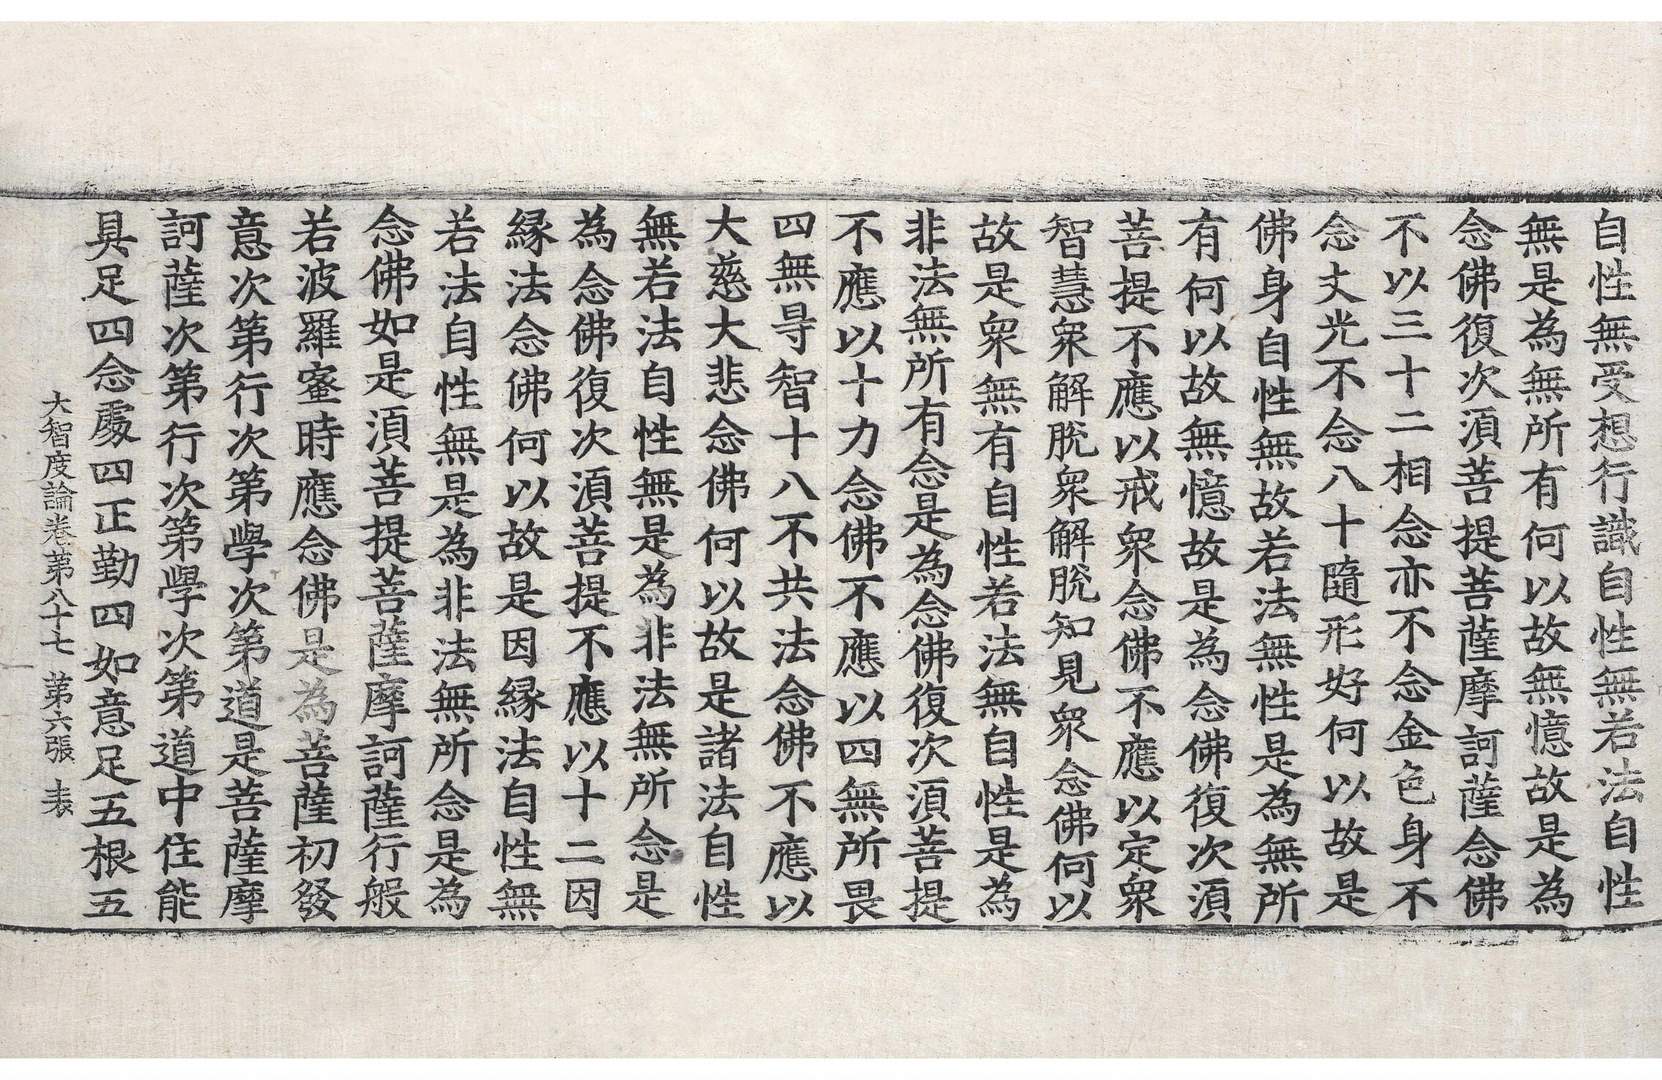 自性無受想行識自性無若法自性
無是為無所有何以故無憶故是為
念佛復次湏菩提菩薩摩訶薩念佛
不以三十二相念亦不念金色身不
念丈光不念八十隨形好何以故是
佛身自性無故若法無性是為無所
有何以故無憶故是為念佛復次湏
菩提不應以戒衆念佛不應以定衆
智慧衆解脫衆解脫知見衆念佛何以
故是衆無有自性若法無自性是為
非法無所有念是為念佛復次湏菩提
不應以十力念佛不應以四無所畏
四無㝵智十八不共法念佛不應以
大慈大悲念佛何以故是諸法自性
無若法自性無是為非法無所念是
為念佛復次湏菩提不應以十二因
縁法念佛何以故是因縁法自性無
若法自性無是為非法無所念是為
念佛如是湏菩提菩薩摩訶薩行般
若波羅蜜時應念佛是為菩薩初發
意次第行次第學次第道是菩薩摩
訶薩次第行次第學次第道中住能
具足四念處四正勤四如意足五根五
大智度論卷第八十七 第六張 表